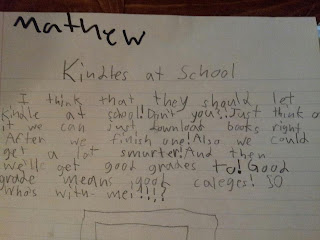 mathew
Kindles at School
I think that they should let
Kindle at school! Don't you?! Just think of
it we can just download books right
After we finish one! Also we could
get a lot smurter! And then
we'lls get good grades to! Good
grade means good caleges! SO
Who's with me!!!?